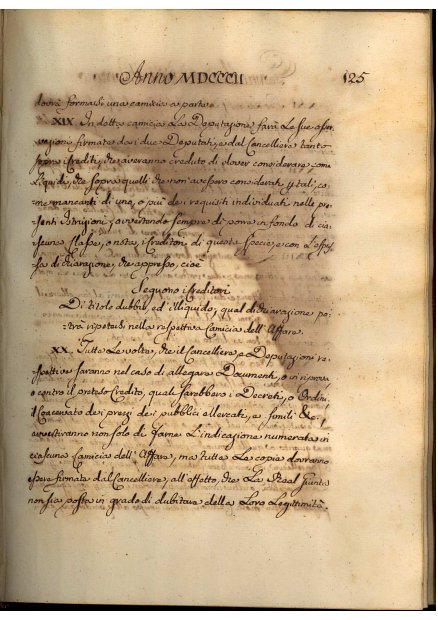 Anno MDCCCII 125
dovrà formarsi una camicia a parte.
XIX. In detta camicia La Deputazione farà Le sue osser-
vazioni firmate dai due Deputati, e dal Cancelliere tanto
sopra i Crediti, che averanno creduto di dover considerare come
Liquidi, che sopra quelli che non avessero considerati tali, co-
me mancanti di uno, o più dei requisiti individuati nelle pre-
senti Istruzioni, avvertendo sempre di porre in fondo di cia-
scuna Classe, o nota, i Creditori di questa specie, e con L'espres-
sa dichiarazione, che appresso, cioè
Seguono i Creditori
Di titolo dubbio, ed illiquido, qual dichiarazione po-
trà ripetersi nella respettiva Camicia dell'Affare.
XX. Tutte Le volte, che il Cancelliere, e Deputazioni re-
spettive saranno nel caso di allegare Documenti, o in riprova
o contro il preteso Credito, quali sarebbero i Decreti, o Ordini,
il Coacervato dei prezzi dei pubblici Mercati, e simili &c.
avvertiranno non solo di farne L'indicazione numerata in
ciascuna Camicia dell'Affare, ma tutte Le copie dovranno
essere firmate dal Cancelliere, all'effetto, che La Real Giunta
non sia posta in grado di dubitare della Loro Legittimità.